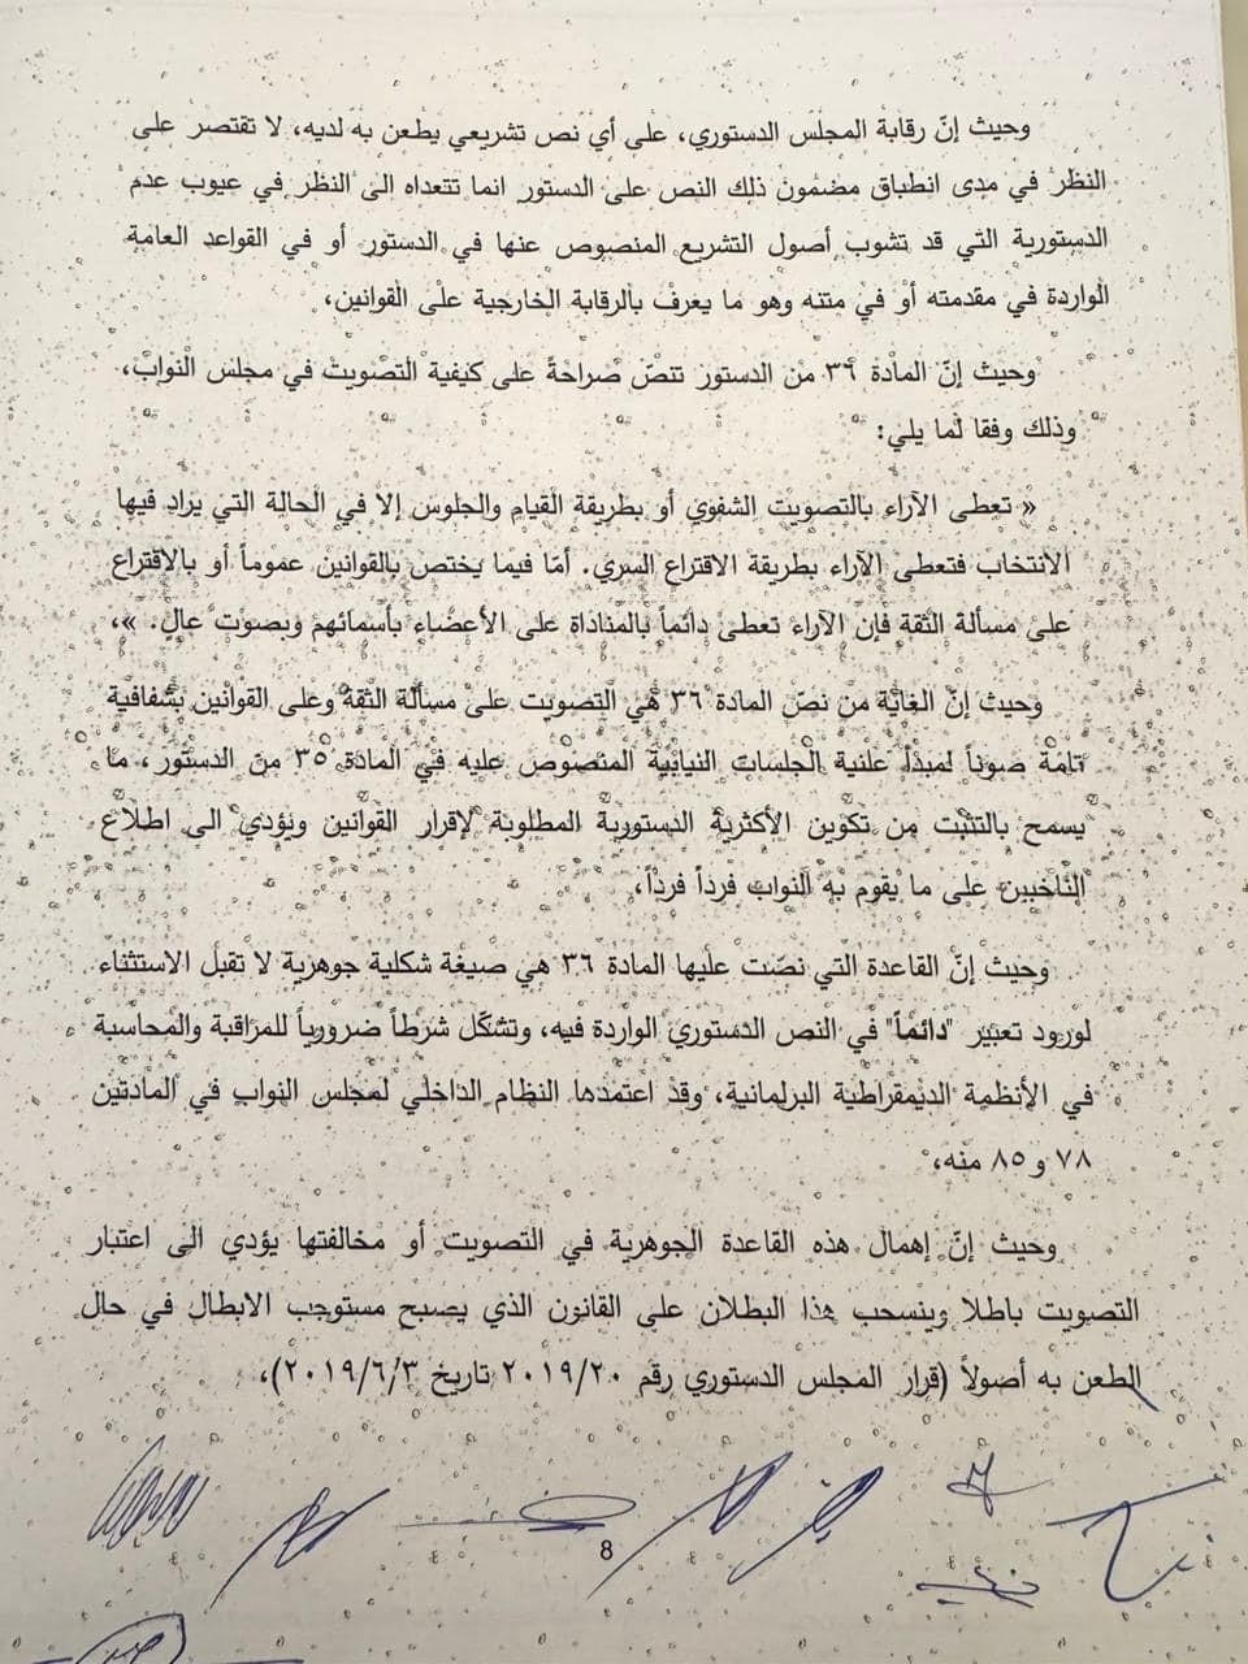 وحيث إنّ رقابة المجلس الدستوري، على أي نص تشريعي يطعن به لديه، لا تقتصر على
النظر في مدى انطباق مضمون ذلك النص على الدستور انما تتعداه الى النظر في عيوب عدم
الدستورية التي قد تشوب أصول التشريع المنصوص عنها في الدستور أو في القواعد العامة
الواردة في مقدمته أو في متنه وهو ما يعرف بالرقابة الخارجية على القوانين،
وحيث إنّ المادة ٣٦ من الدستور تنصّ صراحةً على كيفية التصويت في مجلس النواب،
وذلك وفقا لما يلي:
« تعطى الآراء بالتصويت الشفوي أو بطريقة القيام والجلوس إلا في الحالة التي يراد فيها
الانتخاب فتعطى الآراء بطريقة الاقتراع السري. أمّا فيما يختص بالقوانين عموماً أو بالاقتراع
على مسألة الثقة فإن الآراء تعطى دائماً بالمناداة على الأعضاء بأسمائهم وبصوت عالٍ. »،
وحيث إنّ الغاية من نصّ المادة ٣٦ هي التصويت على مسألة الثقة وعلى القوانين بشفافية
تامة صوناً لمبدأ علنية الجلسات النيابية المنصوص عليه في المادة ٣٥ من الدستور، ما
يسمح بالتثبت من تكوين الأكثرية الدستورية المطلوبة لإقرار القوانين ويؤدي الى اطلاع
الناخبين على ما يقوم به النواب فرداً فرداً،
وحيث إنّ القاعدة التي نصّت عليها المادة ٣٦ هي صيغة شكلية جوهرية لا تقبل الاستثناء
لورود تعبير "دائماً" في النص الدستوري الواردة فيه، وتشكّل شرطاً ضرورياً للمراقبة والمحاسبة
في الأنظمة الديمقراطية البرلمانية، وقد اعتمدها النظام الداخلي لمجلس النواب في المادتين
٧٨ و ٨٥ منه،
وحيث إنّ إهمال هذه القاعدة الجوهرية في التصويت أو مخالفتها يؤدي الى اعتبار
التصويت باطلا وينسحب هذا البطلان على القانون الذي يصبح مستوجب الابطال في حال
الطعن به أصولاً (قرار المجلس الدستوري رقم ٢٠١٩/٢٠ تاريخ ٢٠١٩/٦/٣)،
8